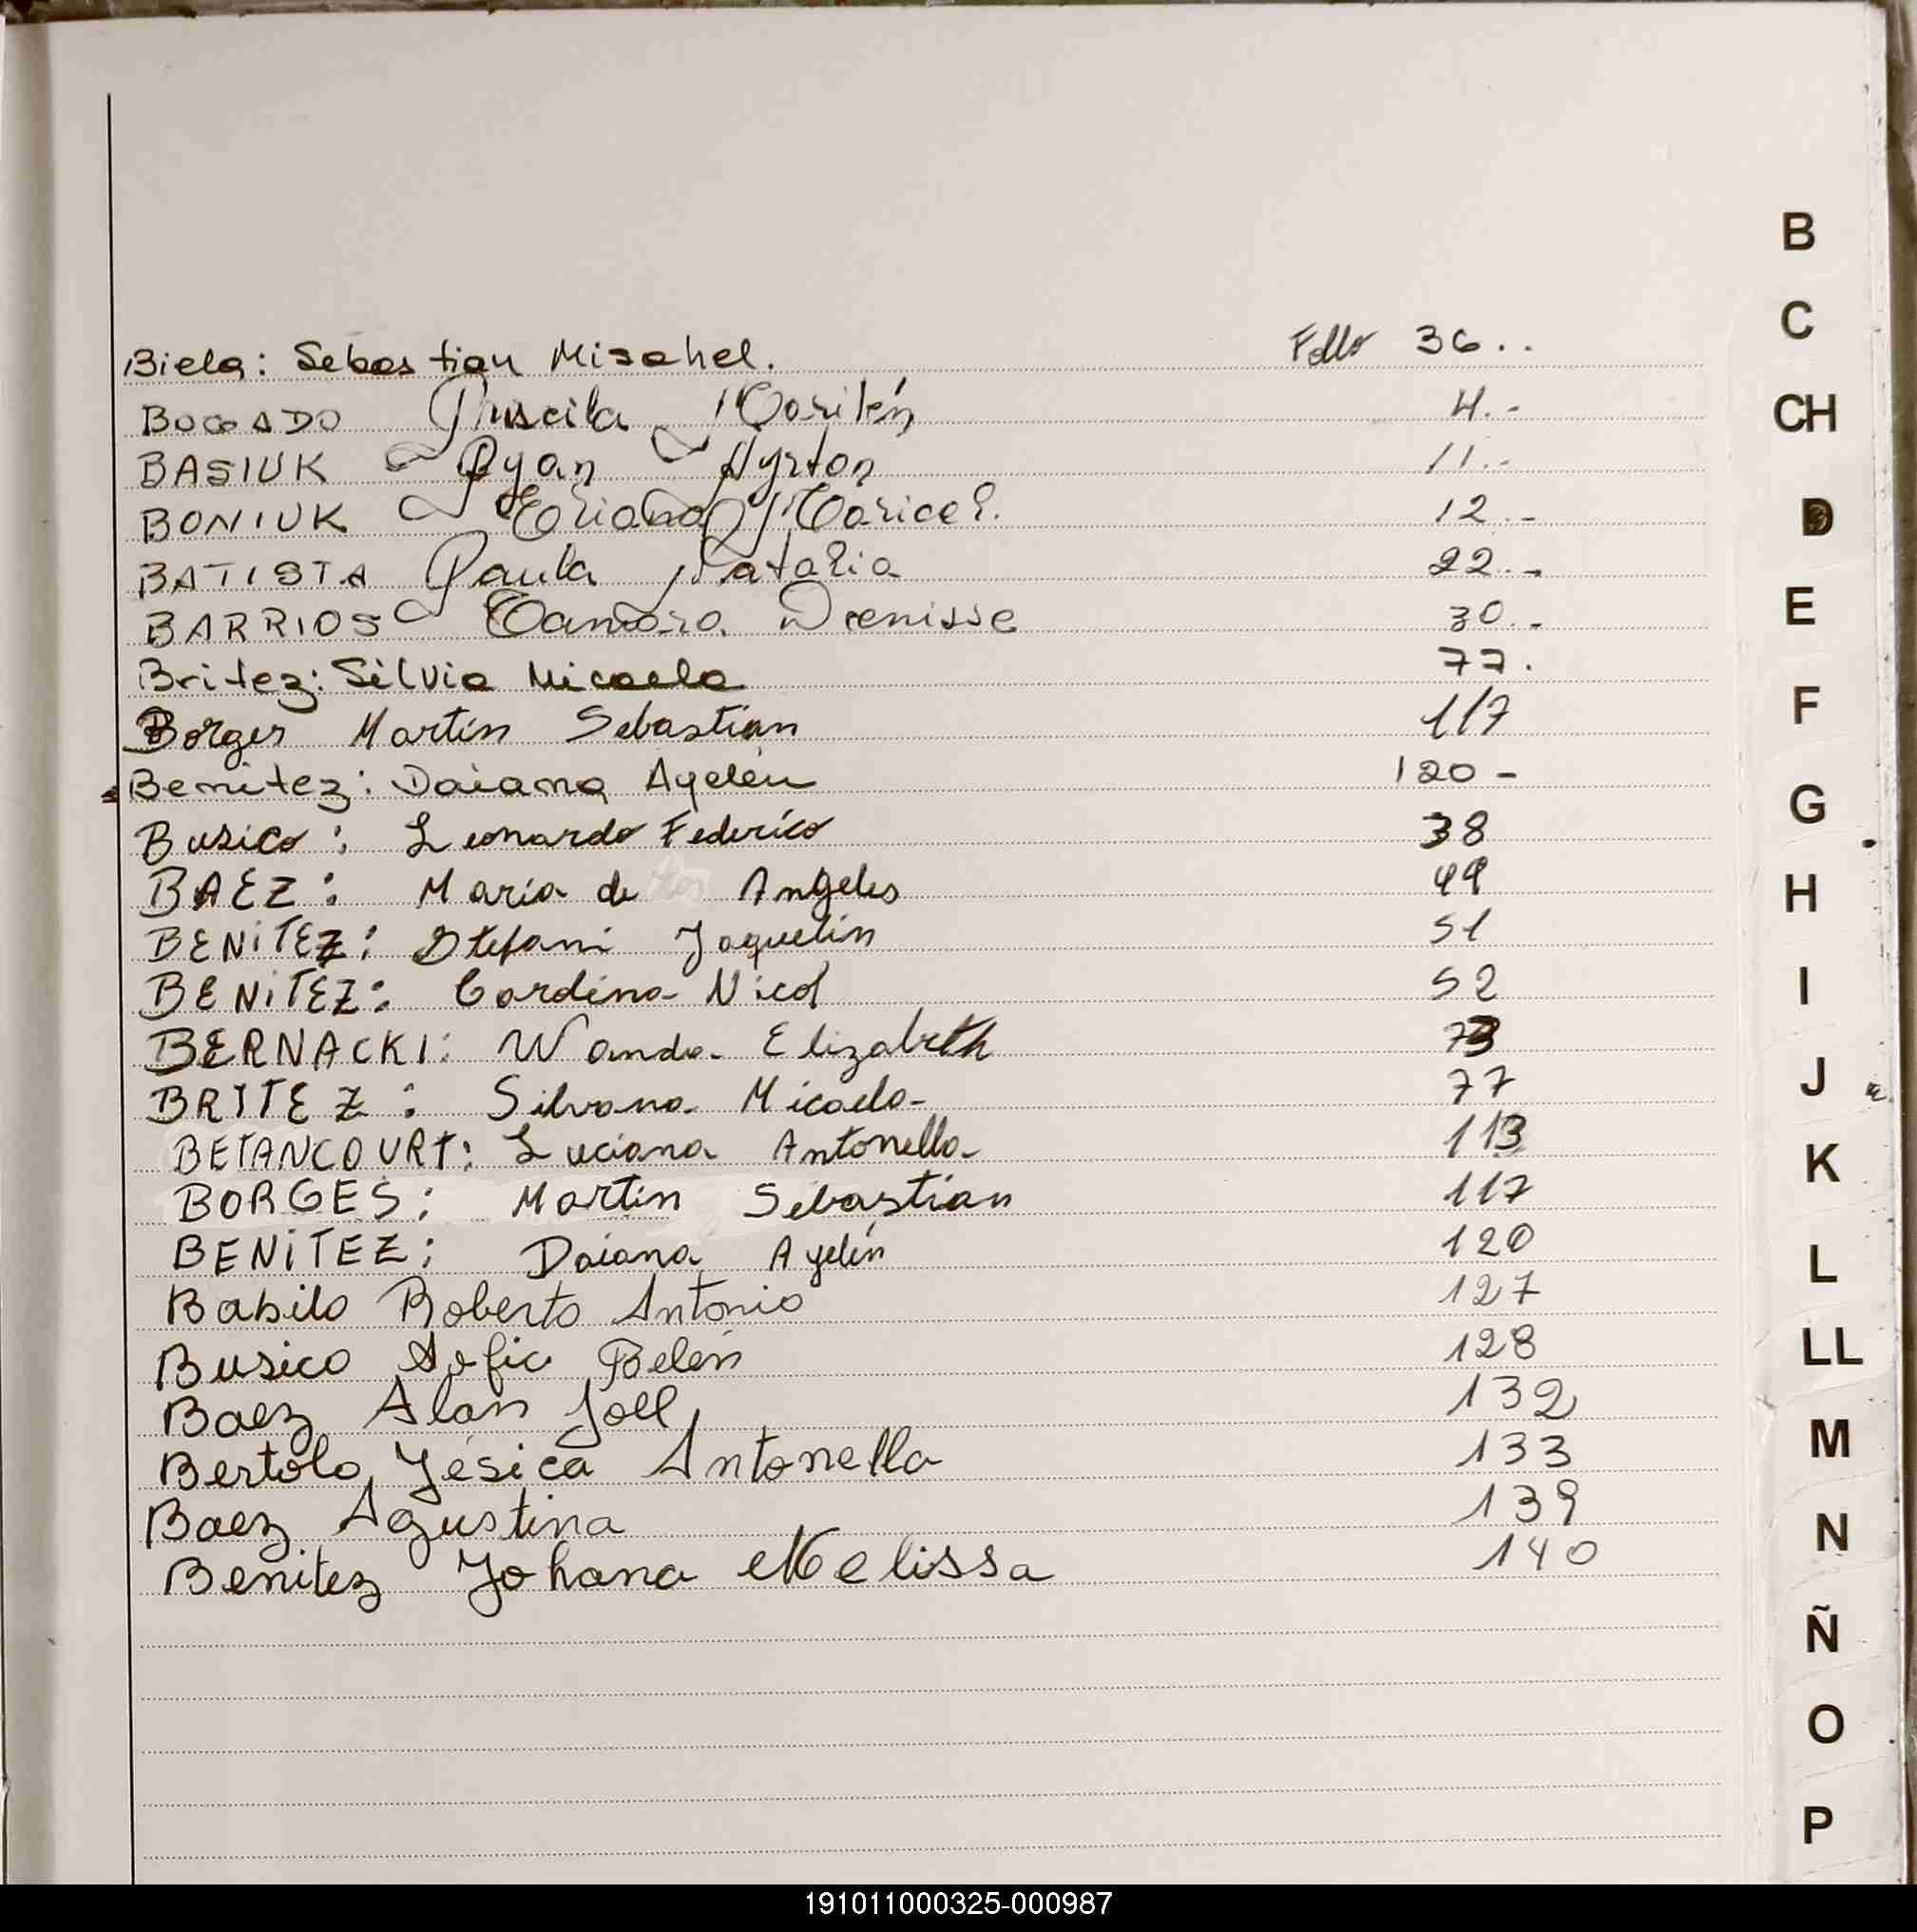 Biela: Sebastian Misahel. Follo 36..
BOGADO Priscila Marilén 4.-
BASIUK Ryan Ayrton 11.-
BONIUK Maricel. 12.-
BATISTA Paula Natalia 22.-
BARRIOS Tamara Denisse 30.-
Britez: Silvia Micaela 77.
Borges Martín Sebastian 117
Benitez: Daiana Ayelén 120-
Busico: Leonardo Federíco 38
BAEZ: María de los Angeles 49
BENiTEZ: Stefani Jaquelin 51
BENiTEZ: Cardina Nicol 52
BERNACKI: Wanda Elizabeth 73
BRITEZ: Silvana Micaela 77
BETANCOURT: Luciana Antonella 113
BORGES: Martin Sebastian 117
BENiTEZ: Daiana Ayelén 120
Babilo Roberto Antonio 127
Busico Sofia Belén 128
Baez Alan Joel 132
Bertolo Yésica Antonella 133
Baez Agustina 139
Benitez Johana Melissa 140
B
C
CH
D
E
F
G
H
I
J
K
L
LL
M
N
Ñ
O
P
191011000325-000987